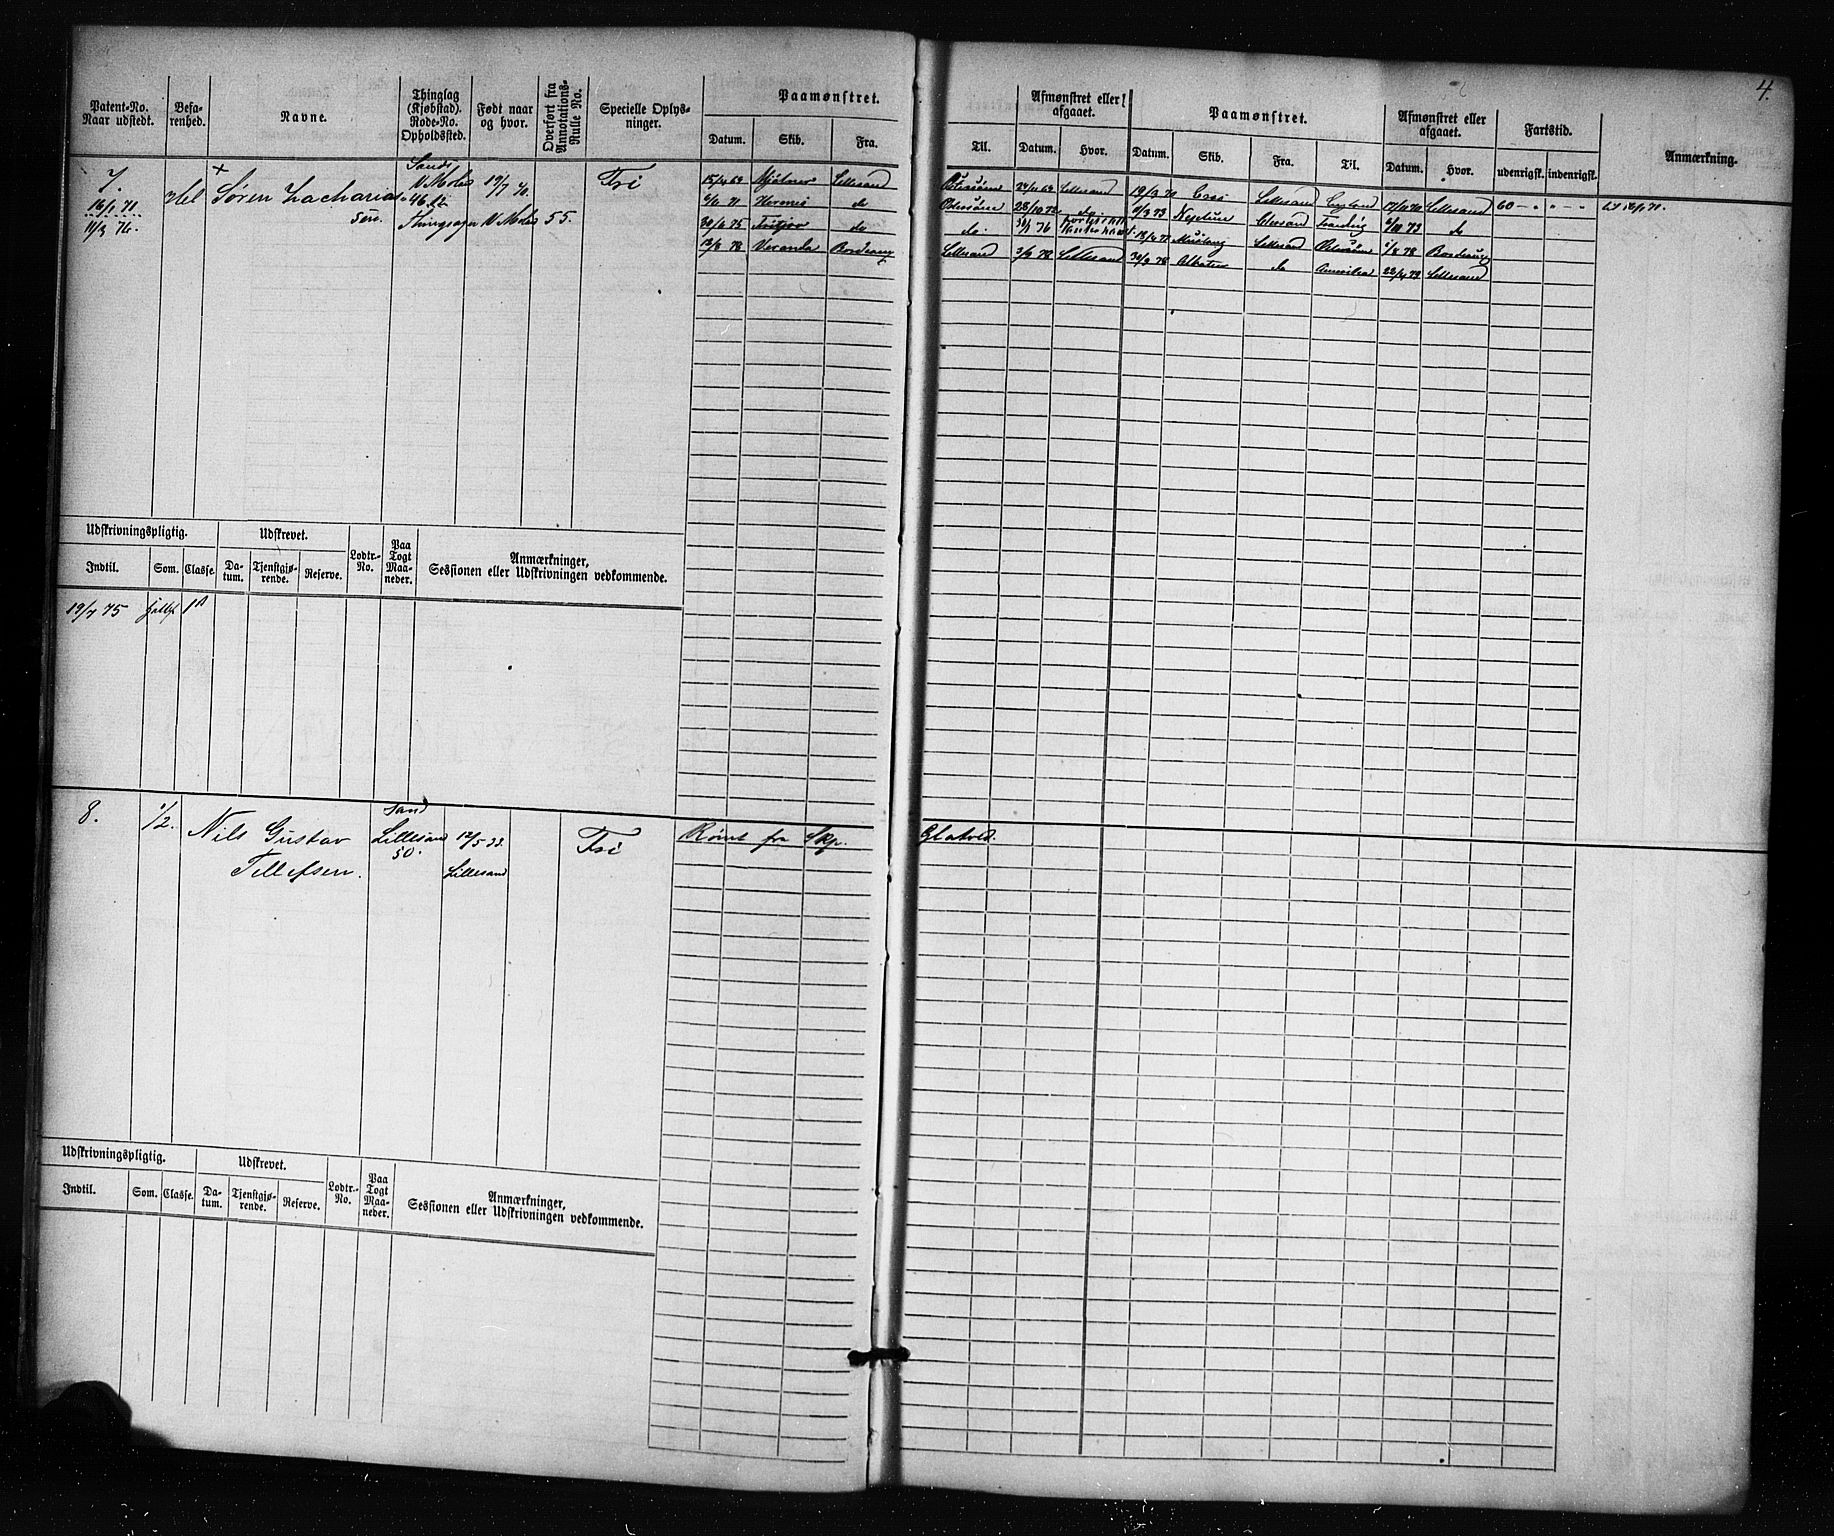 4.
Patent-No.
Naar udstedt.
Befa-
renhed.
Navne.
Thinglag
(Kjøbstad).
Rode-No.
Opholdssted.
Født naar
og hvor.
Overført fra
Annotations-
Rulle No.
Specielle Oplys-
ninger.
Paamønstret.
Datum. Skib. Fra. Til.
Afmønstret eller
afgaaet.
Datum. Hvor.
Paamønstret.
Datum. Skib. Fra. Til.
Afmønstret eller
afgaaet.
Datum. Hvor.
Fartstid.
udenrigsk. indenrigsk.
Anmærkning.
7.
16/1 71
11/3 76.
Hel
Søren Zacharias
sen
Sands
V. Moland
46.
V. Moland
19/7 50.
55.
Fri
15/4 69 Mjølner Lillesand Østersøen Lillesand 19/3 70 Lillesand England Lillesand 60 - " - " -
Hermes do Østersøen 28/10 72 do 9/3 73 Neptun do
30/6 75 do do.
18/4 77 Mustang Lillesand Østersøen 1/4 78 Bordeaux
13/6 78 Veranda Bordeaux Lillesand 3/9 78 Lillesand 30/9 78 Albatros do 22/4 79 Lillesand
Udskrivningspligtig. Udskrevet.
Indtil. Som. Classe. Da-
tum. Tjenstgjø-
rende. Reserve.
Lodtr.-
No.
Paa
Togt
Maa-
neder.
Anmærkninger,
Sessionen eller Udskrivningen vedkommende.
19/7 75
8.
1/2.
Nils Gustav
Tellefsen.
Sand
Lillesand
50.
12/5 33.
Lillesand
Fri
Rømt fra Skp. Glatved.
Udskrivningspligtig. Udskrevet.
Indtil. Som. Classe. Da-
tum. Tjenstgjø-
rende. Reserve.
Lodtr.-
No.
Paa
Togt
Maa-
neder.
Anmærkninger,
Sessionen eller Udskrivningen vedkommende.